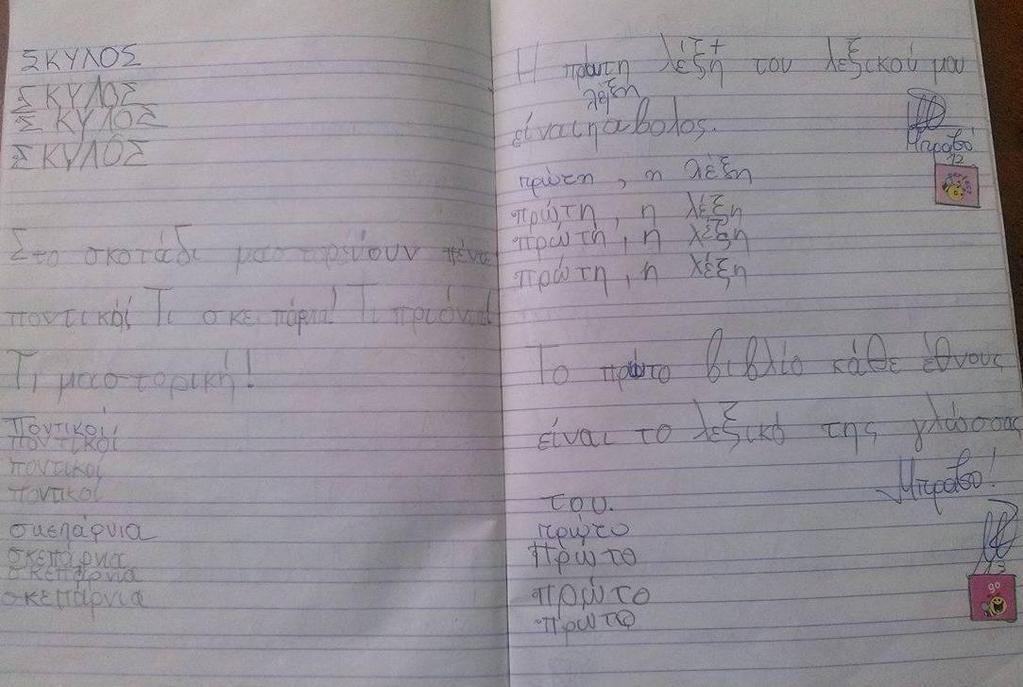 ΣΚΥΛΟΣ
ΣΚΥΛΟΣ
ΣΚΥΛΟΣ
ΣΚΥΛΟΣ
Στο σκοτάδι μαστορεύουν πέντε
ποντικοί! Τι σκεπάρνια! Τι πριόνια!
Τι μαστορική!
Ποντικοί
ποντικοί
ποντικοί
ποντικοί
σκεπάρνια
σκεπάρνια
σκεπάρνια
σκεπάρνια
Η πρώτη λέξη του λεξικού μου
λέξη
είναι η άβολος.
Μπράβο
12
πρώτη, η λέξη
πρώτη, η λέξη
πρώτη, η λέξη
πρώτη, η λέξη
Το πρώτο βιβλίο κάθε έθνους
είναι το λεξικό της γλώσσας
Μπράβο!
του.
πρώτο
πρώτο
πρώτο
πρώτο
13
go